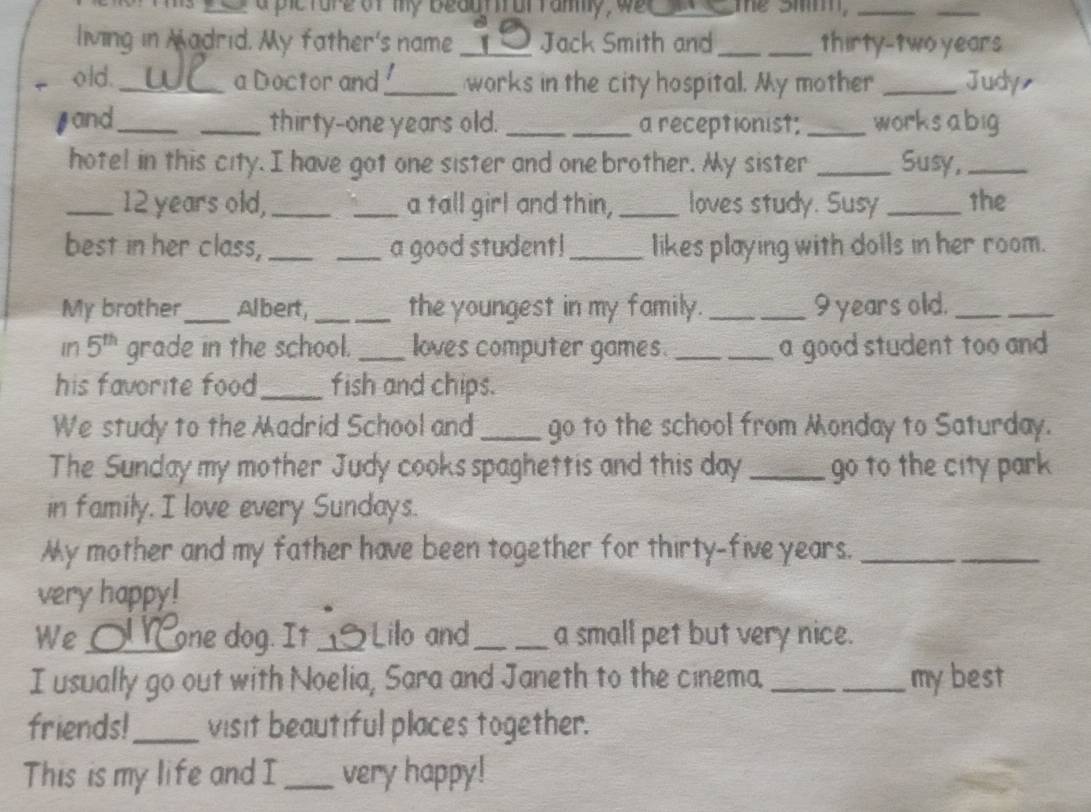 a picture of my beautiful family, we ____ the Smith, ____ ____
living in Madrid. My father's name is Jack Smith and ____ ____ thirty-two years
old. we a Doctor and ____ works in the city hospital. My mother ____ Judy
and ____ ____ thirty-one years old. ____ ____ a receptionist; ____ works a big
hotel in this city. I have got one sister and one brother. My sister ____ Susy, ____
____ 12 years old, ____ ____ a tall girl and thin, ____ loves study. Susy ____ the
best in her class, ____ ____ a good student! ____ likes playing with dolls in her room.
My brother ____ Albert, ____ ____ the youngest in my family. ____ ____ 9 years old. ____ ____
in 5th grade in the school. ____ loves computer games. ____ ____ a good student too and
his favorite food ____ fish and chips.
We study to the Madrid School and ____ go to the school from Monday to Saturday.
The Sunday my mother Judy cooks spaghettis and this day ____ go to the city park
in family. I love every Sundays.
My mother and my father have been together for thirty-five years. ____ ____
very happy!
We are one dog. It is Lilo and ____ ____ a small pet but very nice.
I usually go out with Noelia, Sara and Janeth to the cinema ____ ____ my best
friends! ____ visit beautiful places together.
This is my life and I ____ very happy!